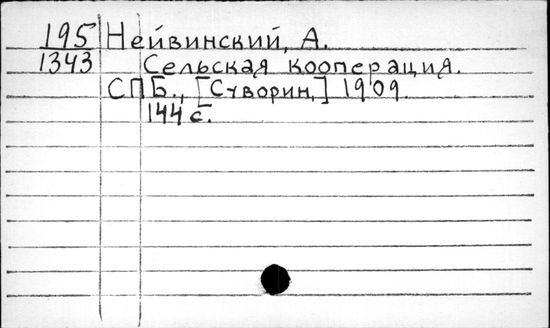 195 Нейвинский, А.
1343 Сельская кооперация.
СПБ., [Суворин,] 1909.
144 с.